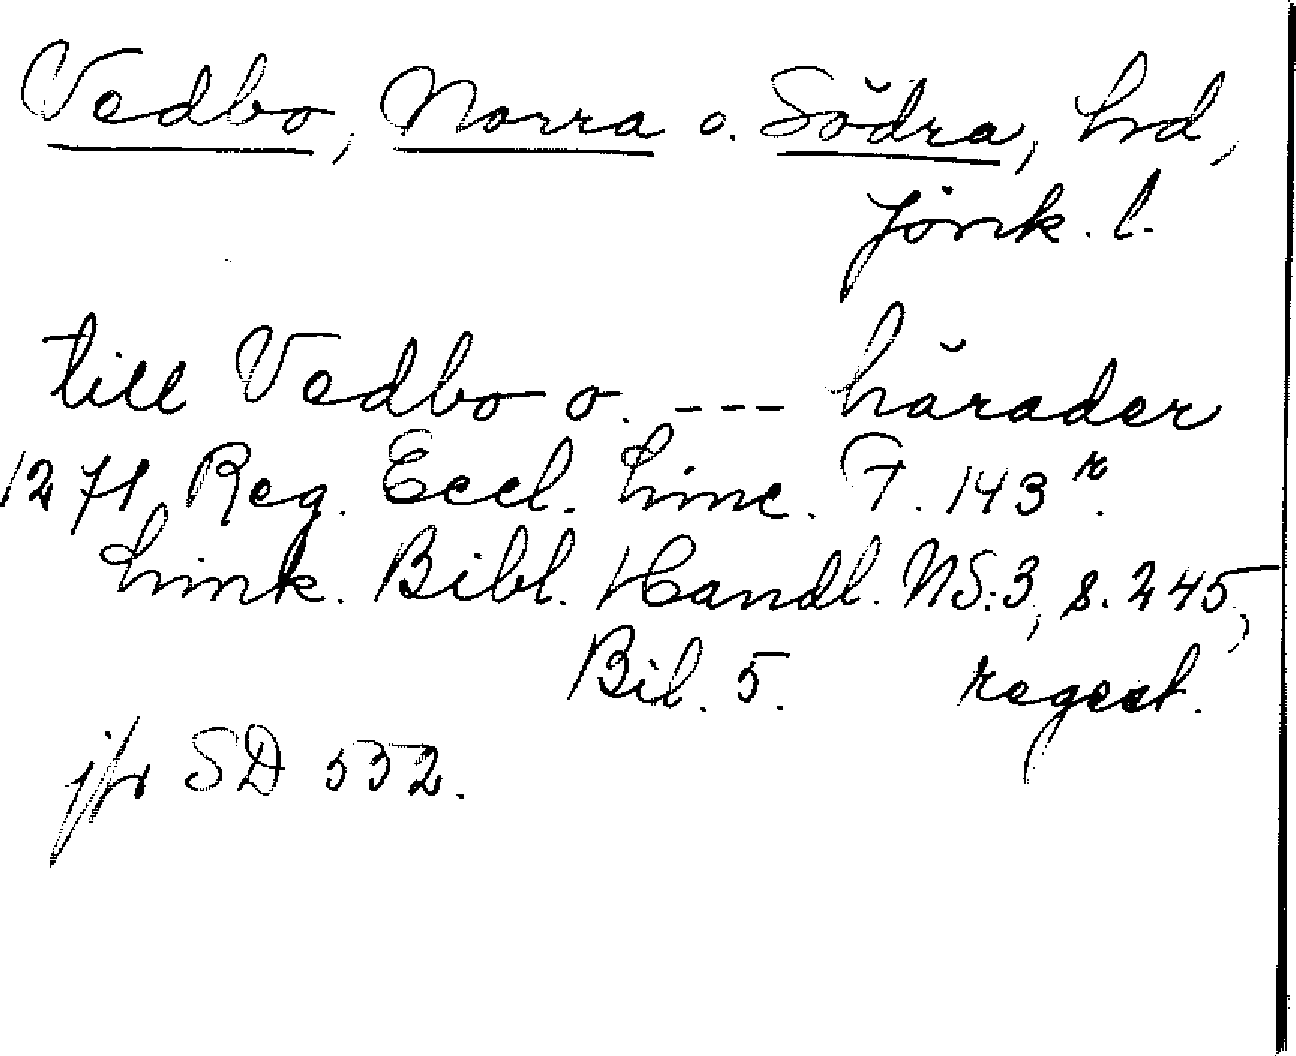 Vedbo, Norra o. Södra, hd,
Jönk. l.
till Vedbo o. --- härader
1271 Reg. Eccl. Linc. F. 143 r.
Link. Bibl. Handl. NS:3, s. 245,
Bil. 5. regest.
jfr SD 552.